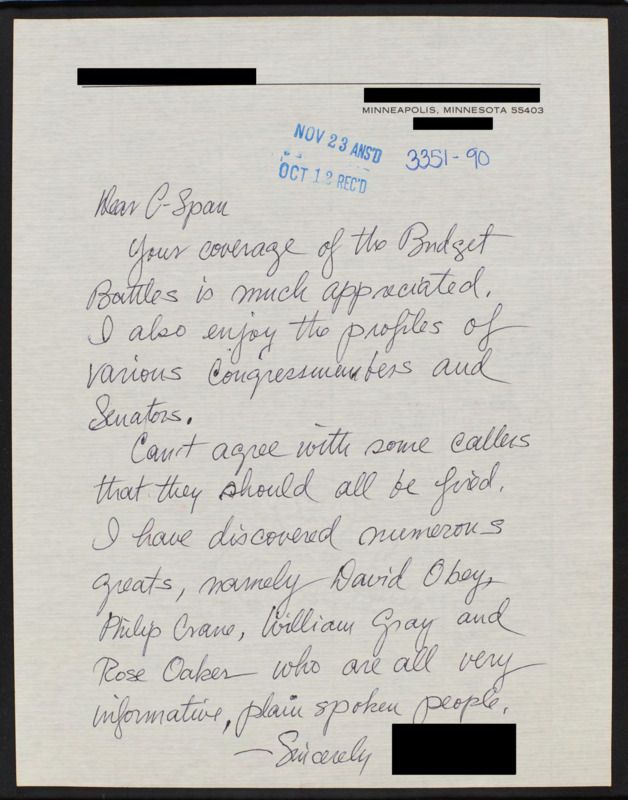 MINNEAPOLIS, MINNESOTA 55403
NOV 23 ANS'D
3351-90
OCT 12 REC'D
Dear C-Span
Your coverage of the Budget
Battles is much appreciated.
I also enjoy the profiles of
various Congressmembers and
Senators.
Can't agree with some callers
that they should all be fired.
I have discovered numerous
greats, namely David Obey,
Philip Crane, William Gray and
Rose Oaker who are all very
informative, plain spoken people.
—Sincerely